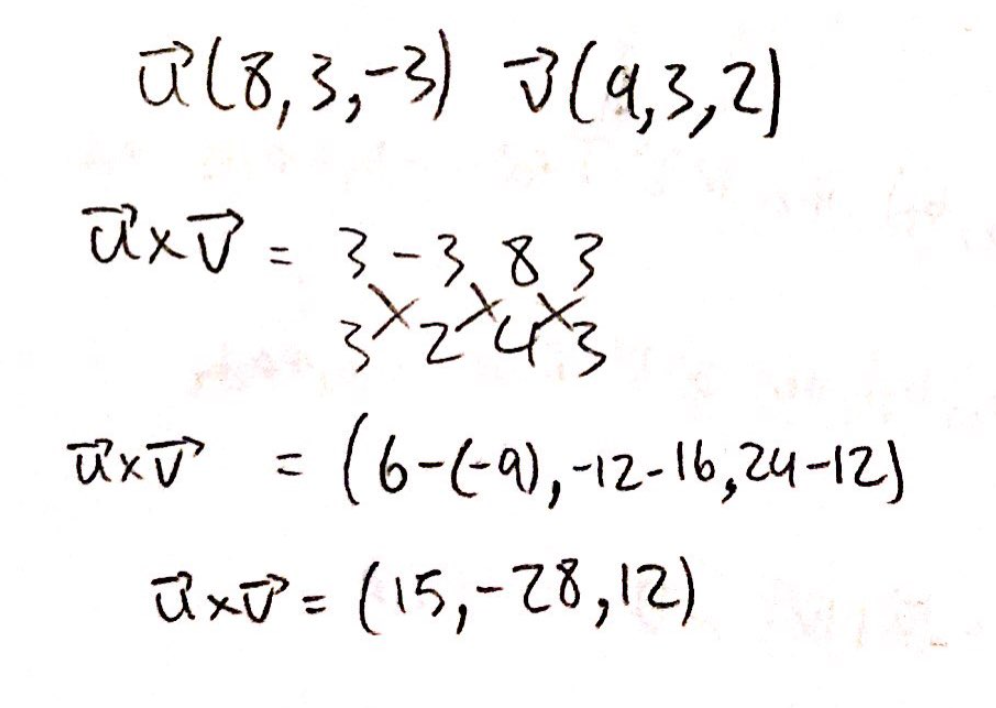 u⃗(8,3,-3) v⃗(9,3,2)
u⃗×v⃗ = 3 -3 8 3
3 2 4 3
u⃗×v⃗ = (6-(-9),-12-16,24-12)
u⃗×v⃗ = (15,-28,12)